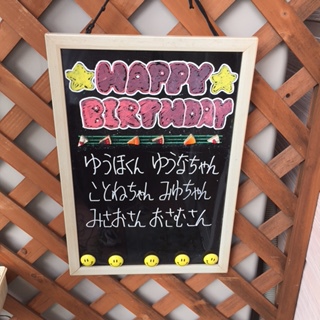 HAPPY
BIRTHDAY
ゆうほくん ゆうなちゃん
ことねちゃん みゆちゃん
みさおさん おさむさん